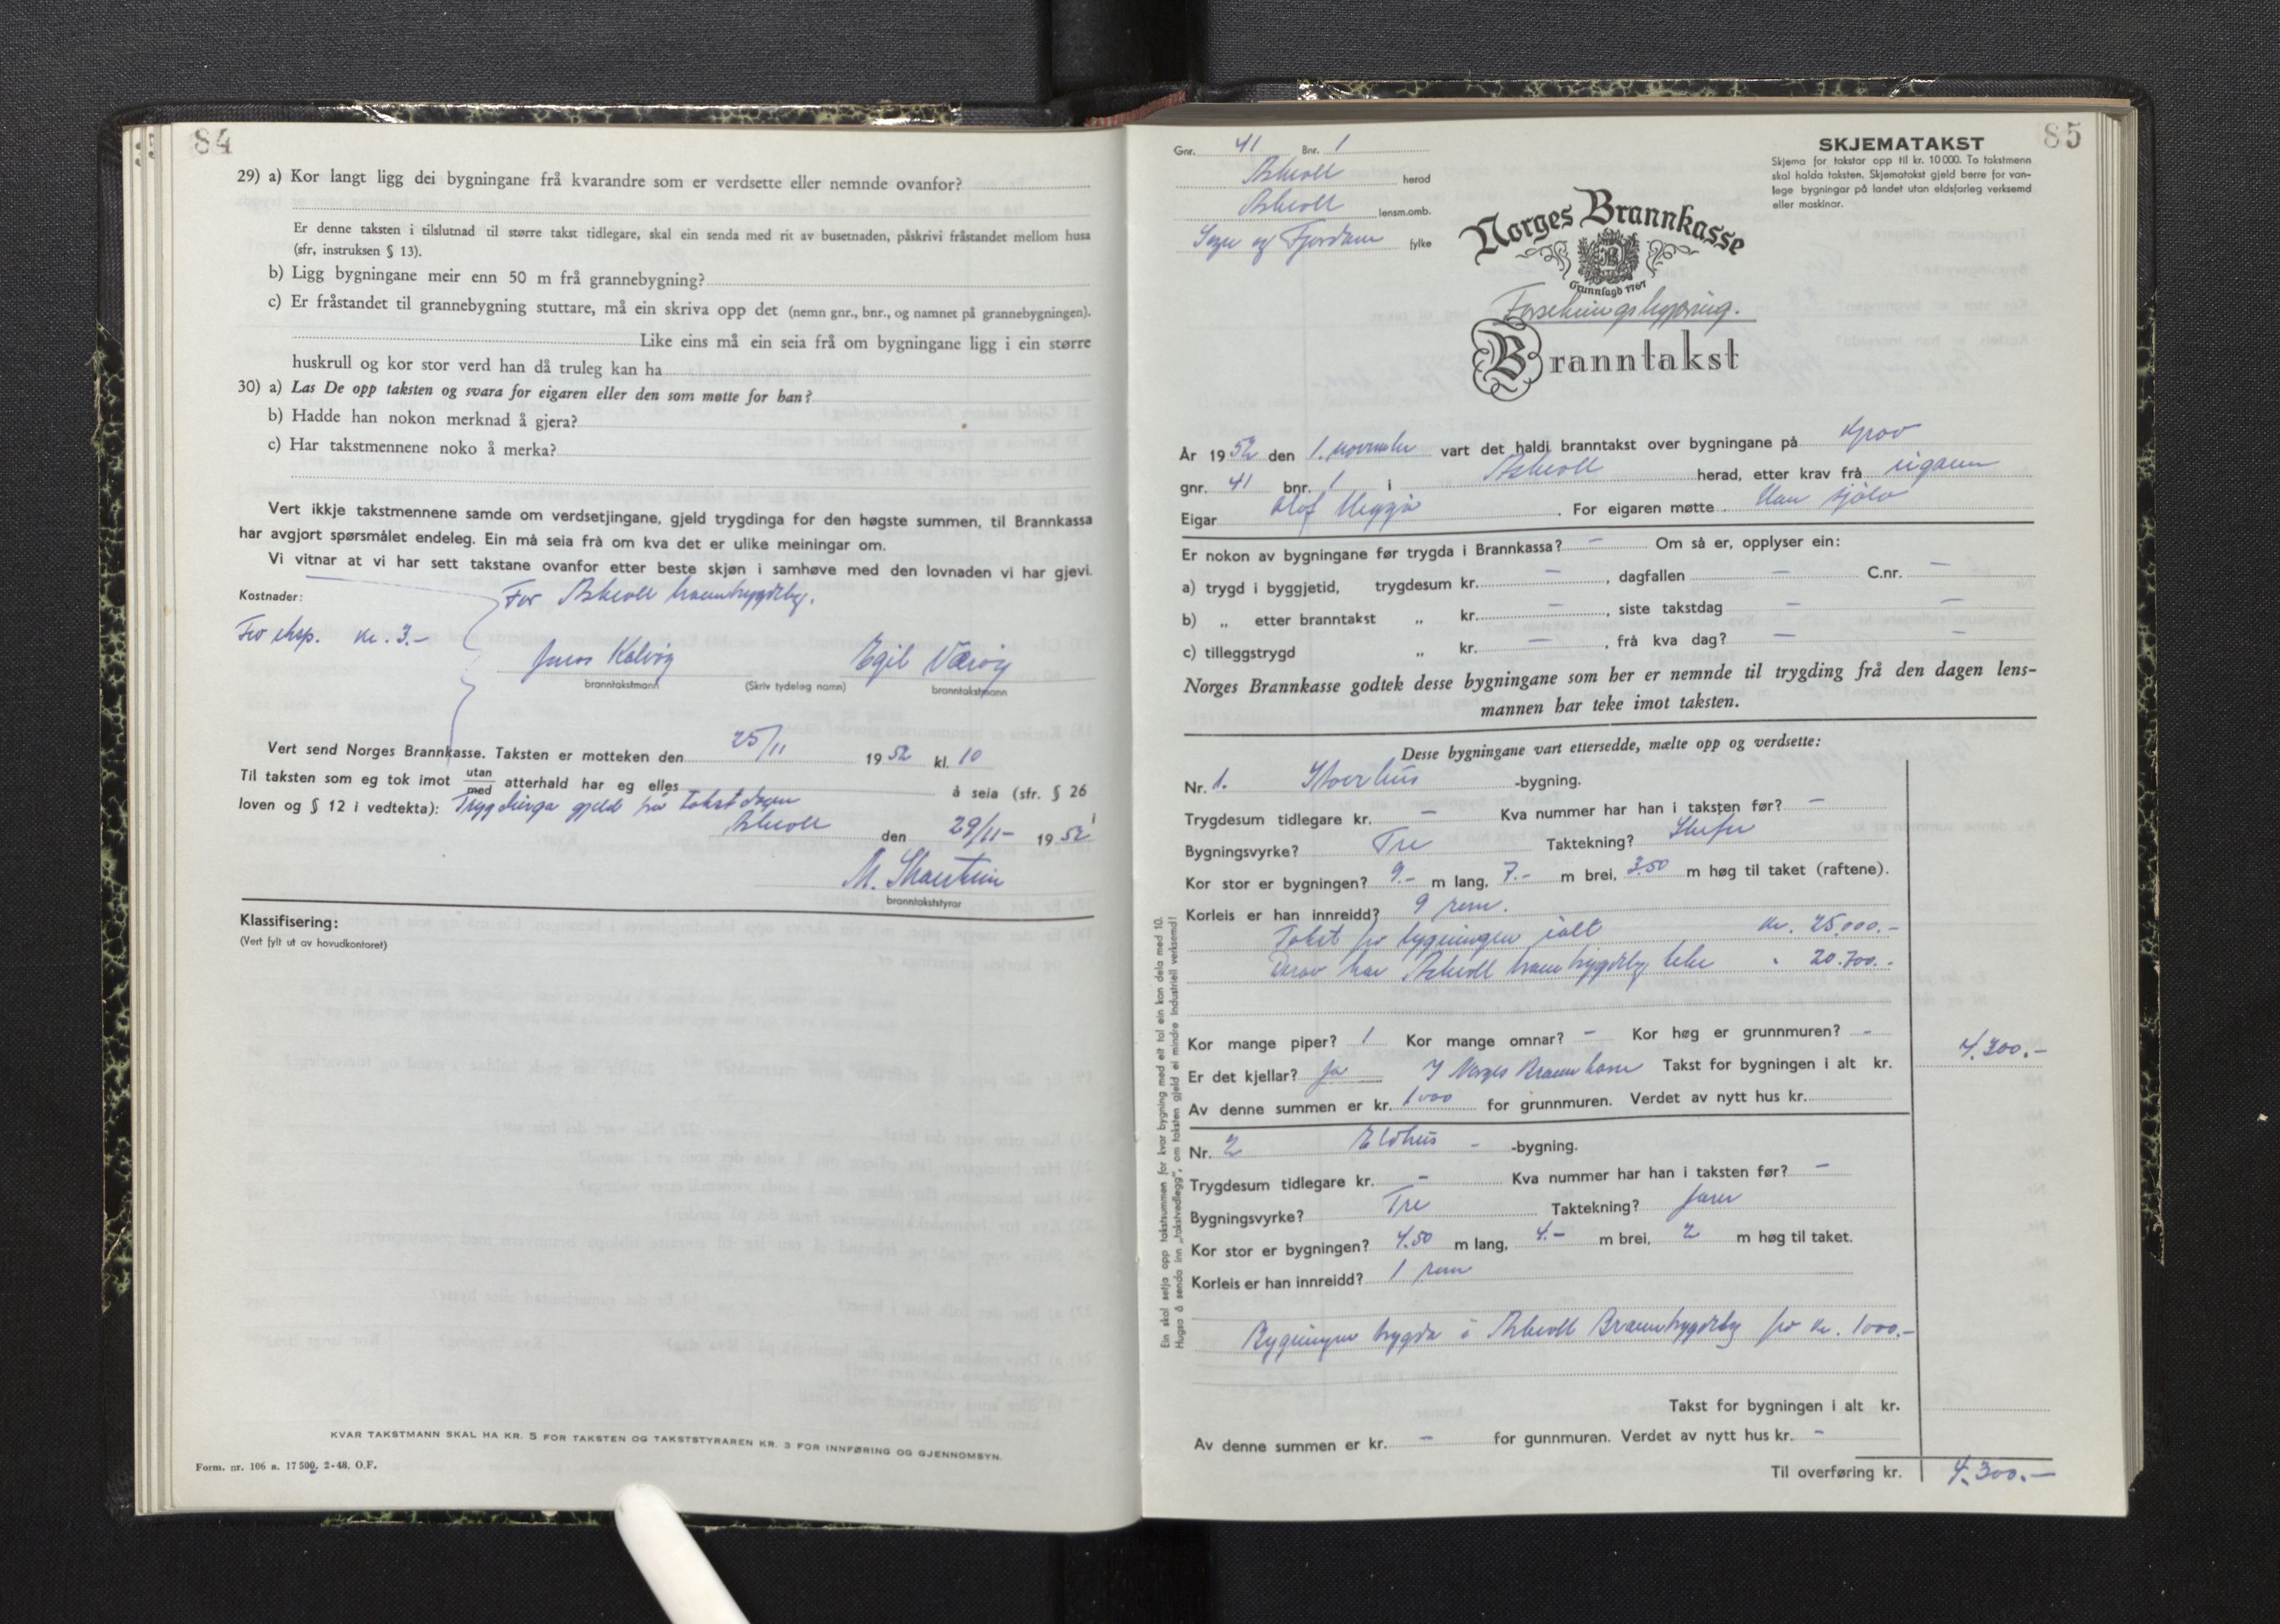 84
29) a) Kor langt ligg dei bygningane frå kvarandre som er verdsette eller nemnde ovanfor?
Er denne taksten i tilslutnad til større takst tidlegare, skal ein senda med rit av busetnaden, påskrivi fråstandet mellom husa
(sfr, instruksen § 13).
b) Ligg bygningane meir enn 50 m frå grannebygning?
c) Er fråstandet til grannebygning stuttare, må ein skriva opp det (nemn gnr., bnr., og namnet på grannebygningen).
Like eins må ein seia frå om bygningane ligg i ein større
huskrull og kor stor verd han då truleg kan ha
30) a) Las De opp taksten og svara for eigaren eller den som møtte for han?
b) Hadde han nokon merknad å gjera?
c) Har takstmennene noko å merka?
Vert ikkje takstmennene samde om verdsetjingane, gjeld trygdinga for den høgste summen, til Brannkassa
har avgjort spørsmålet endeleg. Ein må seia frå om kva det er ulike meiningar om.
Vi vitnar at vi har sett takstane ovanfor etter beste skjøn i samhøve med den lovnaden vi har gjevi.
Kostnader:
For Askvoll branntrygdelag.
For eksp. kr. 3.-
Jens Kalvøy Egil Værøy
branntakstmann (Skriv tydeleg namn) branntakstmann
Vert send Norges Brannkasse. Taksten er motteken den 25/11 1952 kl. 10
Til taksten som eg tok imot utan/med atterhald har eg elles å seia (sfr. § 26 i
loven og § 12 i vedtekta): Trygdinga gjeld frå takstdagen
Askvoll den 29/11- 1952
branntakststyrar
Klassifisering:
(Vert fylt ut av hovudkontoret)
KVAR TAKSTMANN SKAL HA KR. 5 FOR TAKSTEN OG TAKSTSTYRAREN KR. 3 FOR INNFØRING OG GJENNOMSYN.
Form. nr. 106 a. 17 500. 2-48. O.F.
85
SKJEMATAKST
Skjema for takstar opp til kr. 10 000. To takstmenn
skal halda taksten. Skjematakst gjeld berre for van-
lege bygningar på landet utan eldsfarleg verksemd
eller maskinar.
Gnr. 41 Bnr. 1
Askvoll herad
Askvoll lensm.omb.
Sogn og Fjordane fylke
Norges Brannkasse
Grunnlagd 1767
Branntakst
År 1952 den 1. november vart det haldi branntakst over bygningane på
gnr. 41 bnr. 1 i Askvoll herad, etter krav frå eigaren
Eigar Olof For eigaren møtte Han sjølv
Er nokon av bygningane før trygda i Brannkassa? - Om så er, opplyser ein:
a) trygd i byggjetid, trygdesum kr. - , dagfallen - C.nr. -
b) „ etter branntakst „ kr. - , siste takstdag - -
c) tilleggstrygd „ kr. - , frå kva dag? - -
Norges Brannkasse godtek desse bygningane som her er nemnde til trygding frå den dagen lens-
mannen har teke imot taksten.
Desse bygningane vart ettersedde, mælte opp og verdsette:
Nr. 1. Våerhus -bygning.
Trygdesum tidlegare kr. - Kva nummer har han i taksten før? -
Bygningsvyrke? Tre Taktekning? Skifer
Kor stor er bygningen? 9.- m lang, 7.- m brei, 3.50 m høg til taket (raftene).
Korleis er han innreidd? 9 rom.
Takst for bygningen ialt kr. 25.000.-
Derav har Askvoll branntrygdelag teke " 20.700.-
Kor mange piper? 1 Kor mange omnar? - Kor høg er grunnmuren? -
Er det kjellar? Ja I Norges Brannkasse Takst for bygningen i alt kr. 4.300.-
Av denne summen er kr. 1000 for grunnmuren. Verdet av nytt hus kr.
Nr. 2 Eldhus - -bygning.
Trygdesum tidlegare kr. - Kva nummer har han i taksten før? -
Bygningsvyrke? Tre Taktekning? Jarn
Kor stor er bygningen? 4.50 m lang, 4.- m brei, 2 m høg til taket.
Korleis er han innreidd? 1 rom
Bygningen trygda i Askvoll Branntrygdelag for kr. 1000.-
Takst for bygningen i alt kr.
Av denne summen er kr. - for gunnmuren. Verdet av nytt hus kr. -
Til overføring kr. 4.300.-
Ein skal setja opp takstsummen for kvar bygning med eit tal ein kan dela med 10.
Hugsa å senda inn „takstvedlegg", om taksten gjeld ei mindre industriell verksemd!